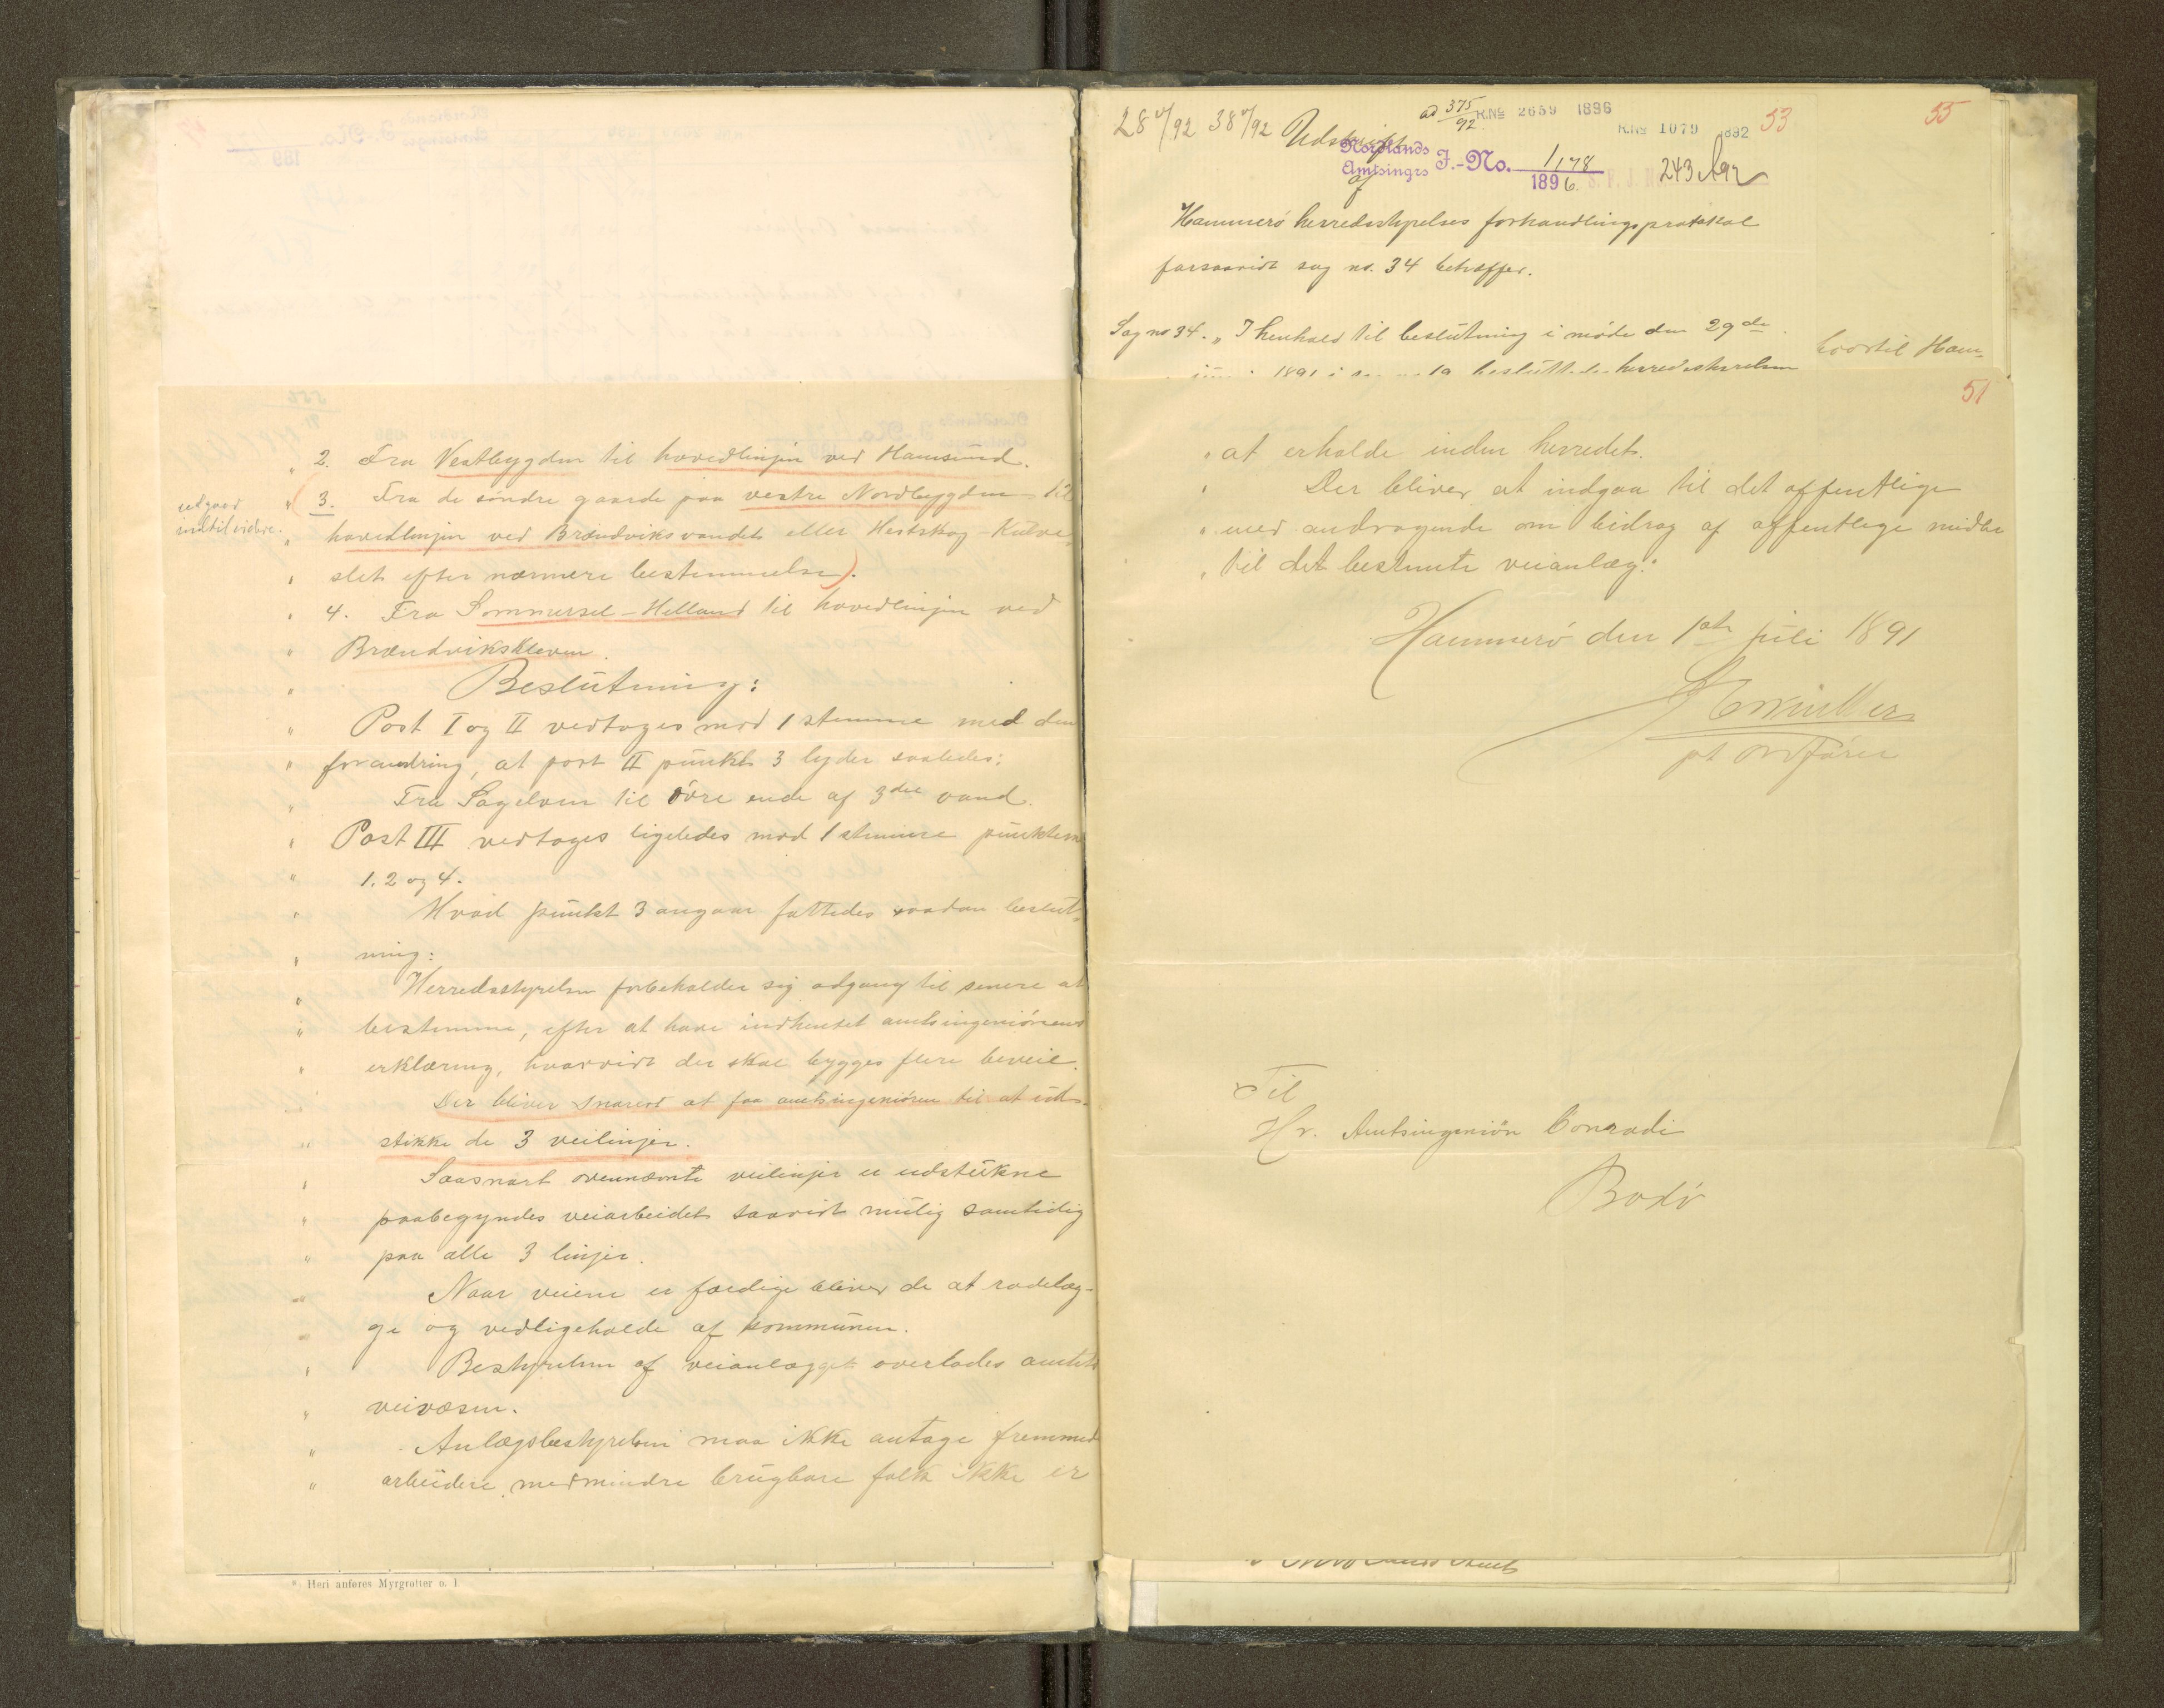 „ 2. Fra Vestbygden til hovedlinjen ved Hamsund.
udgaar
indtil videre.
„ 3. Fra de søndre gaarde paa vestre Nordbygden til
„ hovedlinjen ved Brændviksvandet eller Hestskog-Kulve-
„ slet efter nærmere bestemmelse.
„ 4. Fra Sommersel-Helland til hovedlinjen ved
„ Brændvikskleven.
„ Beslutning:
„ Post I og II vedtoges mod 1 stemme med den
„ forandring, at post II punkt 3 lyder saaledes:
„ Fra Sagelven til øvre ende af 3die vand.
„ Post III vedtoges ligeledes mod 1 stemme punkterne
„ 1. 2 og 4.
„ Hvad punkt 3 angaar fattedes saadan beslut-
„ ning:
„ Herredsstyrelsen forbeholder sig adgang til senere at
„ bestemme, efter at have indhentet amtsingeniørens
„ erklæring, hvorvidt der skal bygges flere beveie.
„ Der bliver snarest at faa amtsingeniøren til at ud-
„ stikke de 3 veilinjer.
„ Saasnart ovennæmte veilinjer er udstukne
„ paabegyndes veiarbeidet saavidt mulig samtidig
„ paa alle 3 linjer.
„ Naar veiene er færdige bliver de at rodelæg-
„ ge og vedligeholde af kommunen.
„ Bestyrelsen af veianlægget overlades amtets
„ veivæsen.
„ Anlægsbestyrelsen maa ikke antage fremmed
„ arbeidere, medmindre brugbare folk ikke er
* Heri anføres Myrgrøfter o. l
28 v/92 38 v/92 Udskrift
ad 375/92 R.No 2659 1896
R.No 1079 1892 53
55
Nordlands
Amtsingrs J.-No. 1178
1896.
243 A 92
af
Hammerø herredsstyrelses forhandlingsprotokol
forsaavidt sag no. 34 betræffer.
Sag no 34. „ I henhold til beslutning i møde den 29de
1891 i 19 besluttede herredsstyrelsen
hvortil Ham-
51
„ at erholde inden herredet.
„ Der bliver at indgaa til det offentlige
„ med andragende om bidrag af offentlige midler
„ til det bestemte veianlæg."
Hammerø den 1ste juli 1891
pt ordfører
Til
Hr. Amtsingeniør Conradi
Bodø